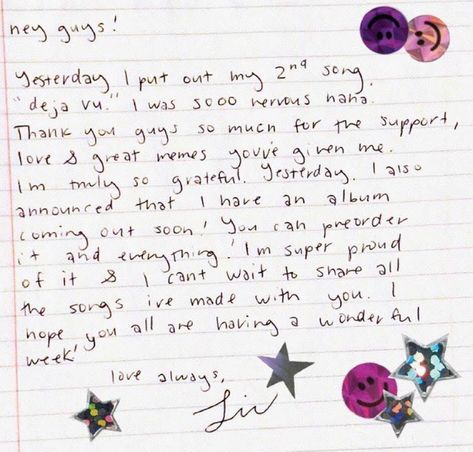 hey guys!
Yesterday I put out my 2nd song.
"deja vu." I was sooo nervous haha.
Thank you guys so much for the support,
love & great memes youv've given me.
Im truly so grateful. Yesterday. I also
announced that I have an album
coming out soon! You can preorder
it and everything! I'm super proud
of it & I cant wait to share all
the songs ive made with you. I
hope you all are having a wonderful
week!
love always,
Liv